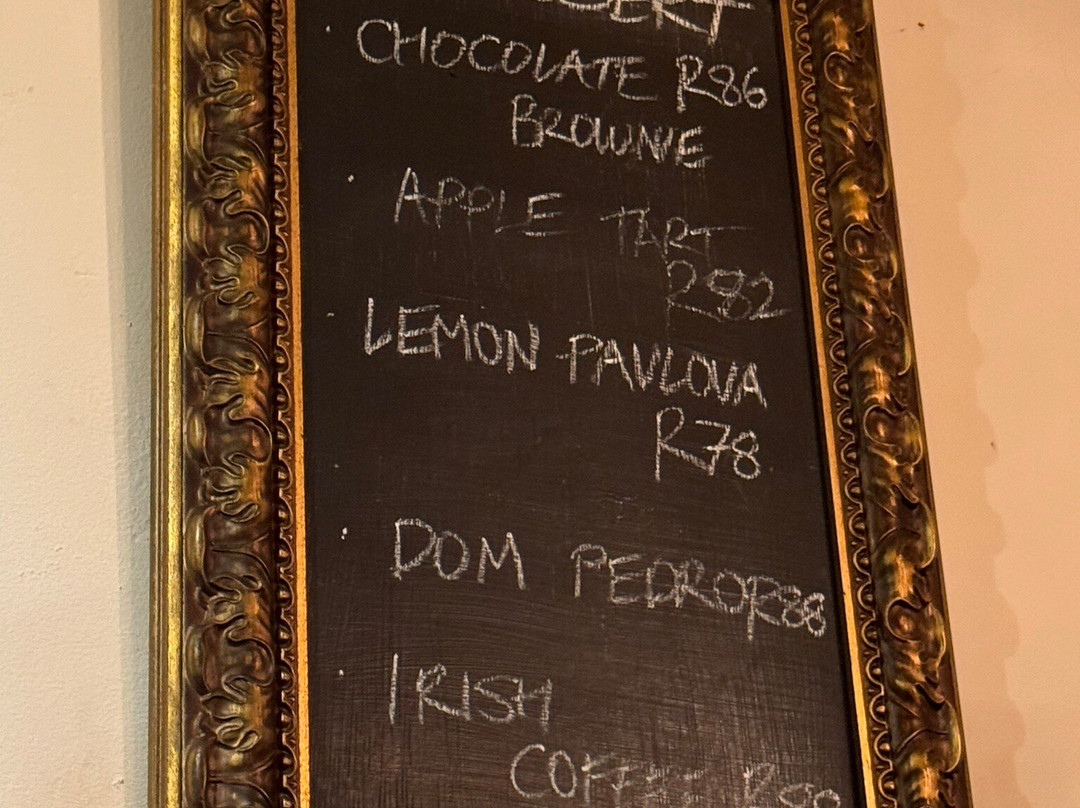 CHOCOLATE R86
BROWNIE
APPLE TART
R82
LEMON PAVLOVA
R78
DOM PEDRO R88
IRISH
COFFEE